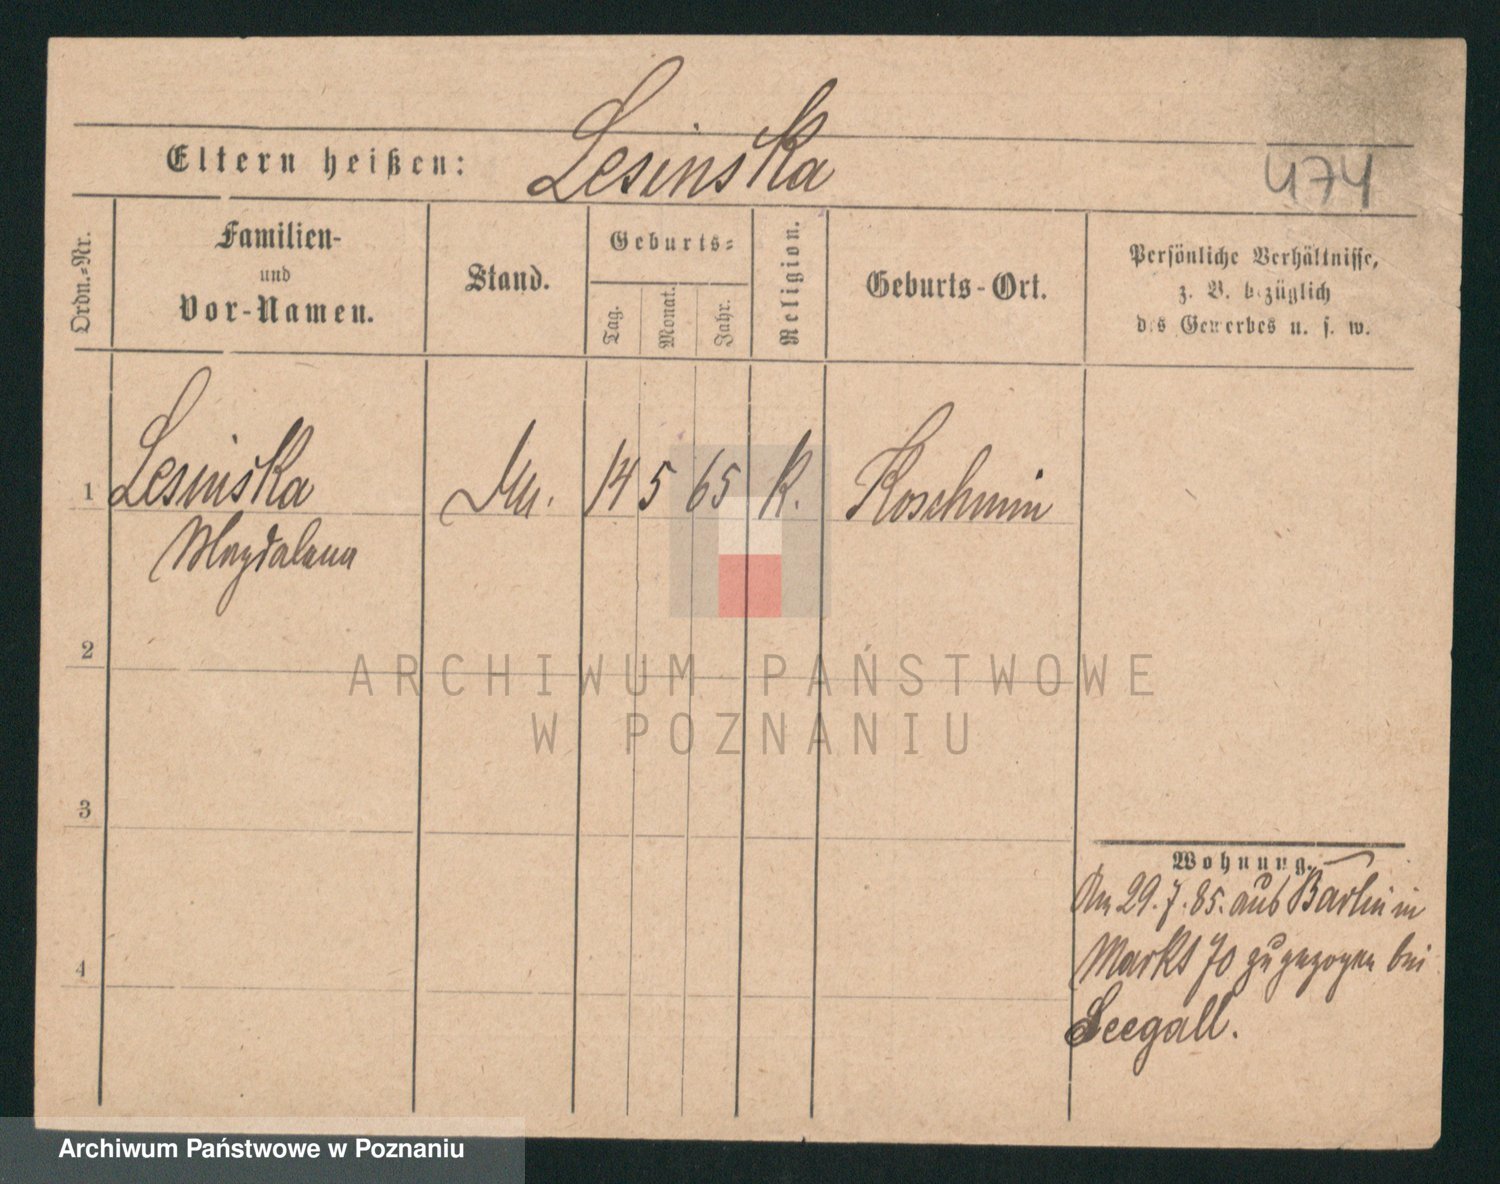 Lesinska
Eltern heißen:
474
Ordn.=Nr.
Familien-
und
Vor-Namen.
Stand.
Geburts=
Tag.
Monat.
Jahr.
Religion.
Geburts-Ort.
Persönliche Verhältnisse,
z. B. bezüglich
des Gewerbes u. s. w.
1 Lesinska 14 5 65 k. Koschmin
Magdalena
2
3
4
Wohnung.
Am 29.7.85. aus Berlin in
Markt 70 zugezogen bei
Seegall.
ARCHIWUM PAŃSTWOWE
W POZNANIU
Archiwum Państwowe w Poznaniu